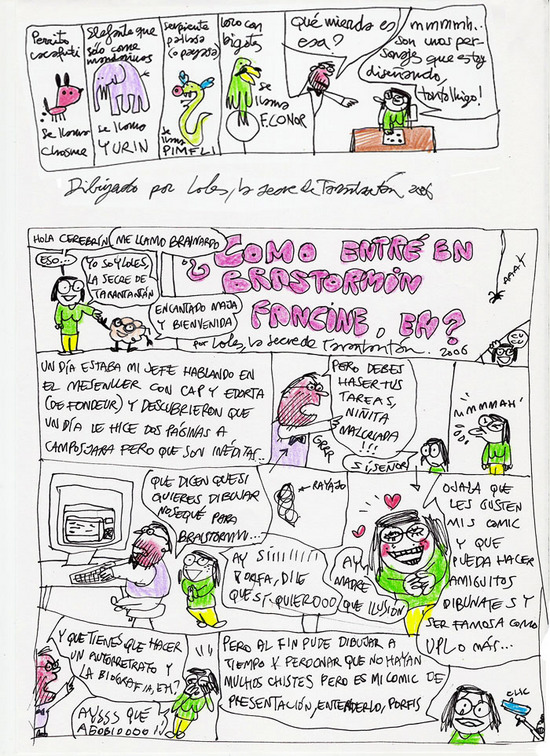 Perrito
cacafuti
se llama
Chosme
Elefante que
sólo come
mandarinas
se llama
YURIN
serpiente
payasa
(o payasa)
se llama
PIMELI
loro con
bigote
se
llama
ECONOR
Qué mierda es
esa?
mmmmh..
son unos per-
sonajes que estoy
diseñando,
tontolhigo!
Dibujado por Loles, la secre de Tarantantón 2006
HOLA CEREBRÍN
ME LLAMO BRAINARDO
ESO...
YO SOY LOLES,
LA SECRE DE
TARANTANTÁN
ENCANTADO MAJA
Y BIENVENIDA
¿COMO ENTRÉ EN
BRASTORMIN
FANCINE, EH?
por Loles, la secre de Tarantantón. 2006
UN DÍA ESTABA MI JEFE HABLANDO EN
EL MESENLLER CON CAP Y EDORTA
(DE FONDEUR) Y DESCUBRIERON QUE
UN DÍA LE HICE DOS PAGINAS A
PERO QUE SON INÉDITAS..
PERO DEBES
HASER TUS
TAREAS,
NIÑITA
MALCRIADA
!!!
GRRR
SÍ, SEÑOR
MMMMAH'
QUE DICEN QUE SI
QUIERES DIBUJAR
NOSEQUÉ PARA
BRAISTORMIN...
← RAYAJO
AY SÍIIIIIIII
PORFA, DILE
QUE SÍ QUIEROOO
AY
MADRE
QUE ILUSIÓN
OJALA QUE
LES GUSTEN
MIS COMIC
Y QUE
PUEDA HACER
AMIGUITOS
DIBUNATES Y
SER FAMOSA COMO
UPL O MÁS...
Y QUE TIENES QUE HACER
UN AUTORRETRATO Y
LA BIOGRAFIA, EH?
AYSSS QUÉ
AGOBIOOOO!!
PERO AL FIN PUDE DIBUJAR A
TIEMPO Y PERDONAR QUE NO HAYAN
MUCHOS CHISTES PERO ES MI COMIC DE
PRESENTACIÓN, ENTENDERLO, PORFIS
CLIC